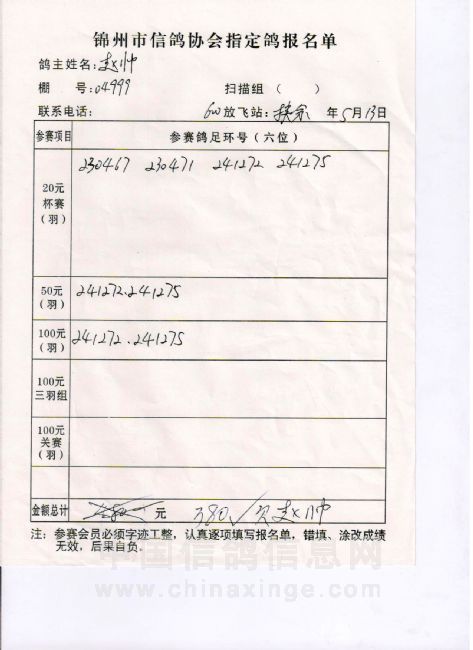 锦州市信鸽协会指定鸽报名单
鸽主姓名：赵帅
棚 号：04999 扫描组（ ）
联系电话： 600放飞站：扶余 年5月13日
参赛项目 参赛鸽足环号（六位）
20元 杯赛（羽） 230467 230471 241272 241275
50元（羽） 241272.241275
100元（羽） 241272.241275
100元 三羽组
100元 关赛（羽）
金额总计 元 380√ 欠赵帅
注：参赛会员必须字迹工整，认真逐项填写报名单，错填、涂改成绩
无效，后果自负.
中国信鸽信息网
www.chinaxinge.com